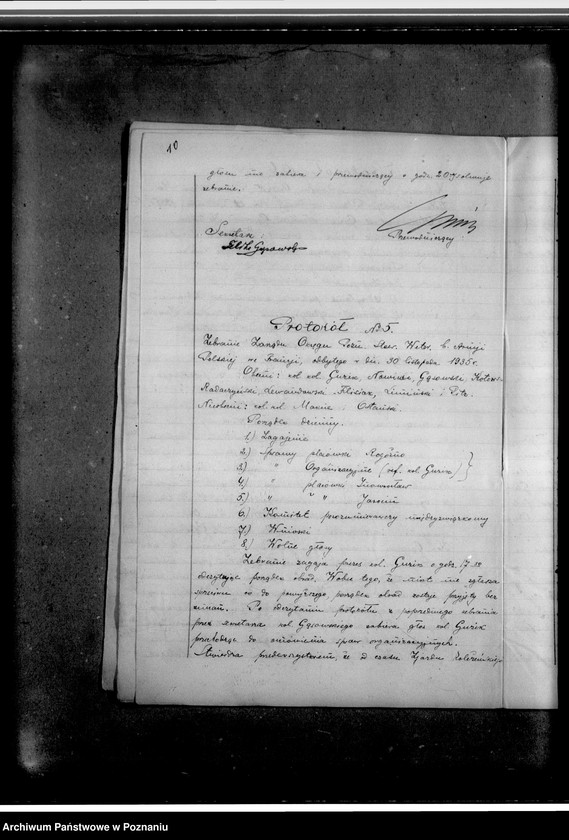 10
głosu nie zabiera i przewodniczący o godz. 20 solwuje
zebranie.
Sekretarz:
Przewodniczący
Protokół No 5.
Zebranie Zarządu Okręgu Pozn. Stow. Weter. b. Armji
Polskiej we Francji, odbytego w dniu 30 listopada 1935 r.
Obecni: kol. kol. Gurza, Nowicki, Gąsowski,
Radaczyński, Lewandowski, Floriax, Zimiński i
Nieobecni: kol. kol. i Ostański.
Porządek dzienny.
1.) Zagajenie
2.) Sprawy placówki Rogoźno
3.) " Organizacyjne (ref. kol. Gurza)
4.) " placówki Inowrocław
5.) " " " Jarocin
6.) Komitet porozumiewawczy międzyzwiązkowy
7.) Wnioski
8.) Wolne głosy
Zebranie zagaja prezes kol. Gurza o godz. 17.18
odczytując porządek obrad. Wobec tego, że nikt nie zgłasza
sprzeciwu co do powyższego, porządek obrad zostaje przyjęty bez
zmian. Po odczytaniu protokołu z poprzedniego zebrania
przez sekretarza kol. Gąsowskiego zabiera głos kol. Gurza
przechodząc do omówienia spraw organizacyjnych.
Stwierdza przedewszystkiem, że z czasu Zjazdu koleżeńskiego
Archiwum Państwowe w Poznaniu